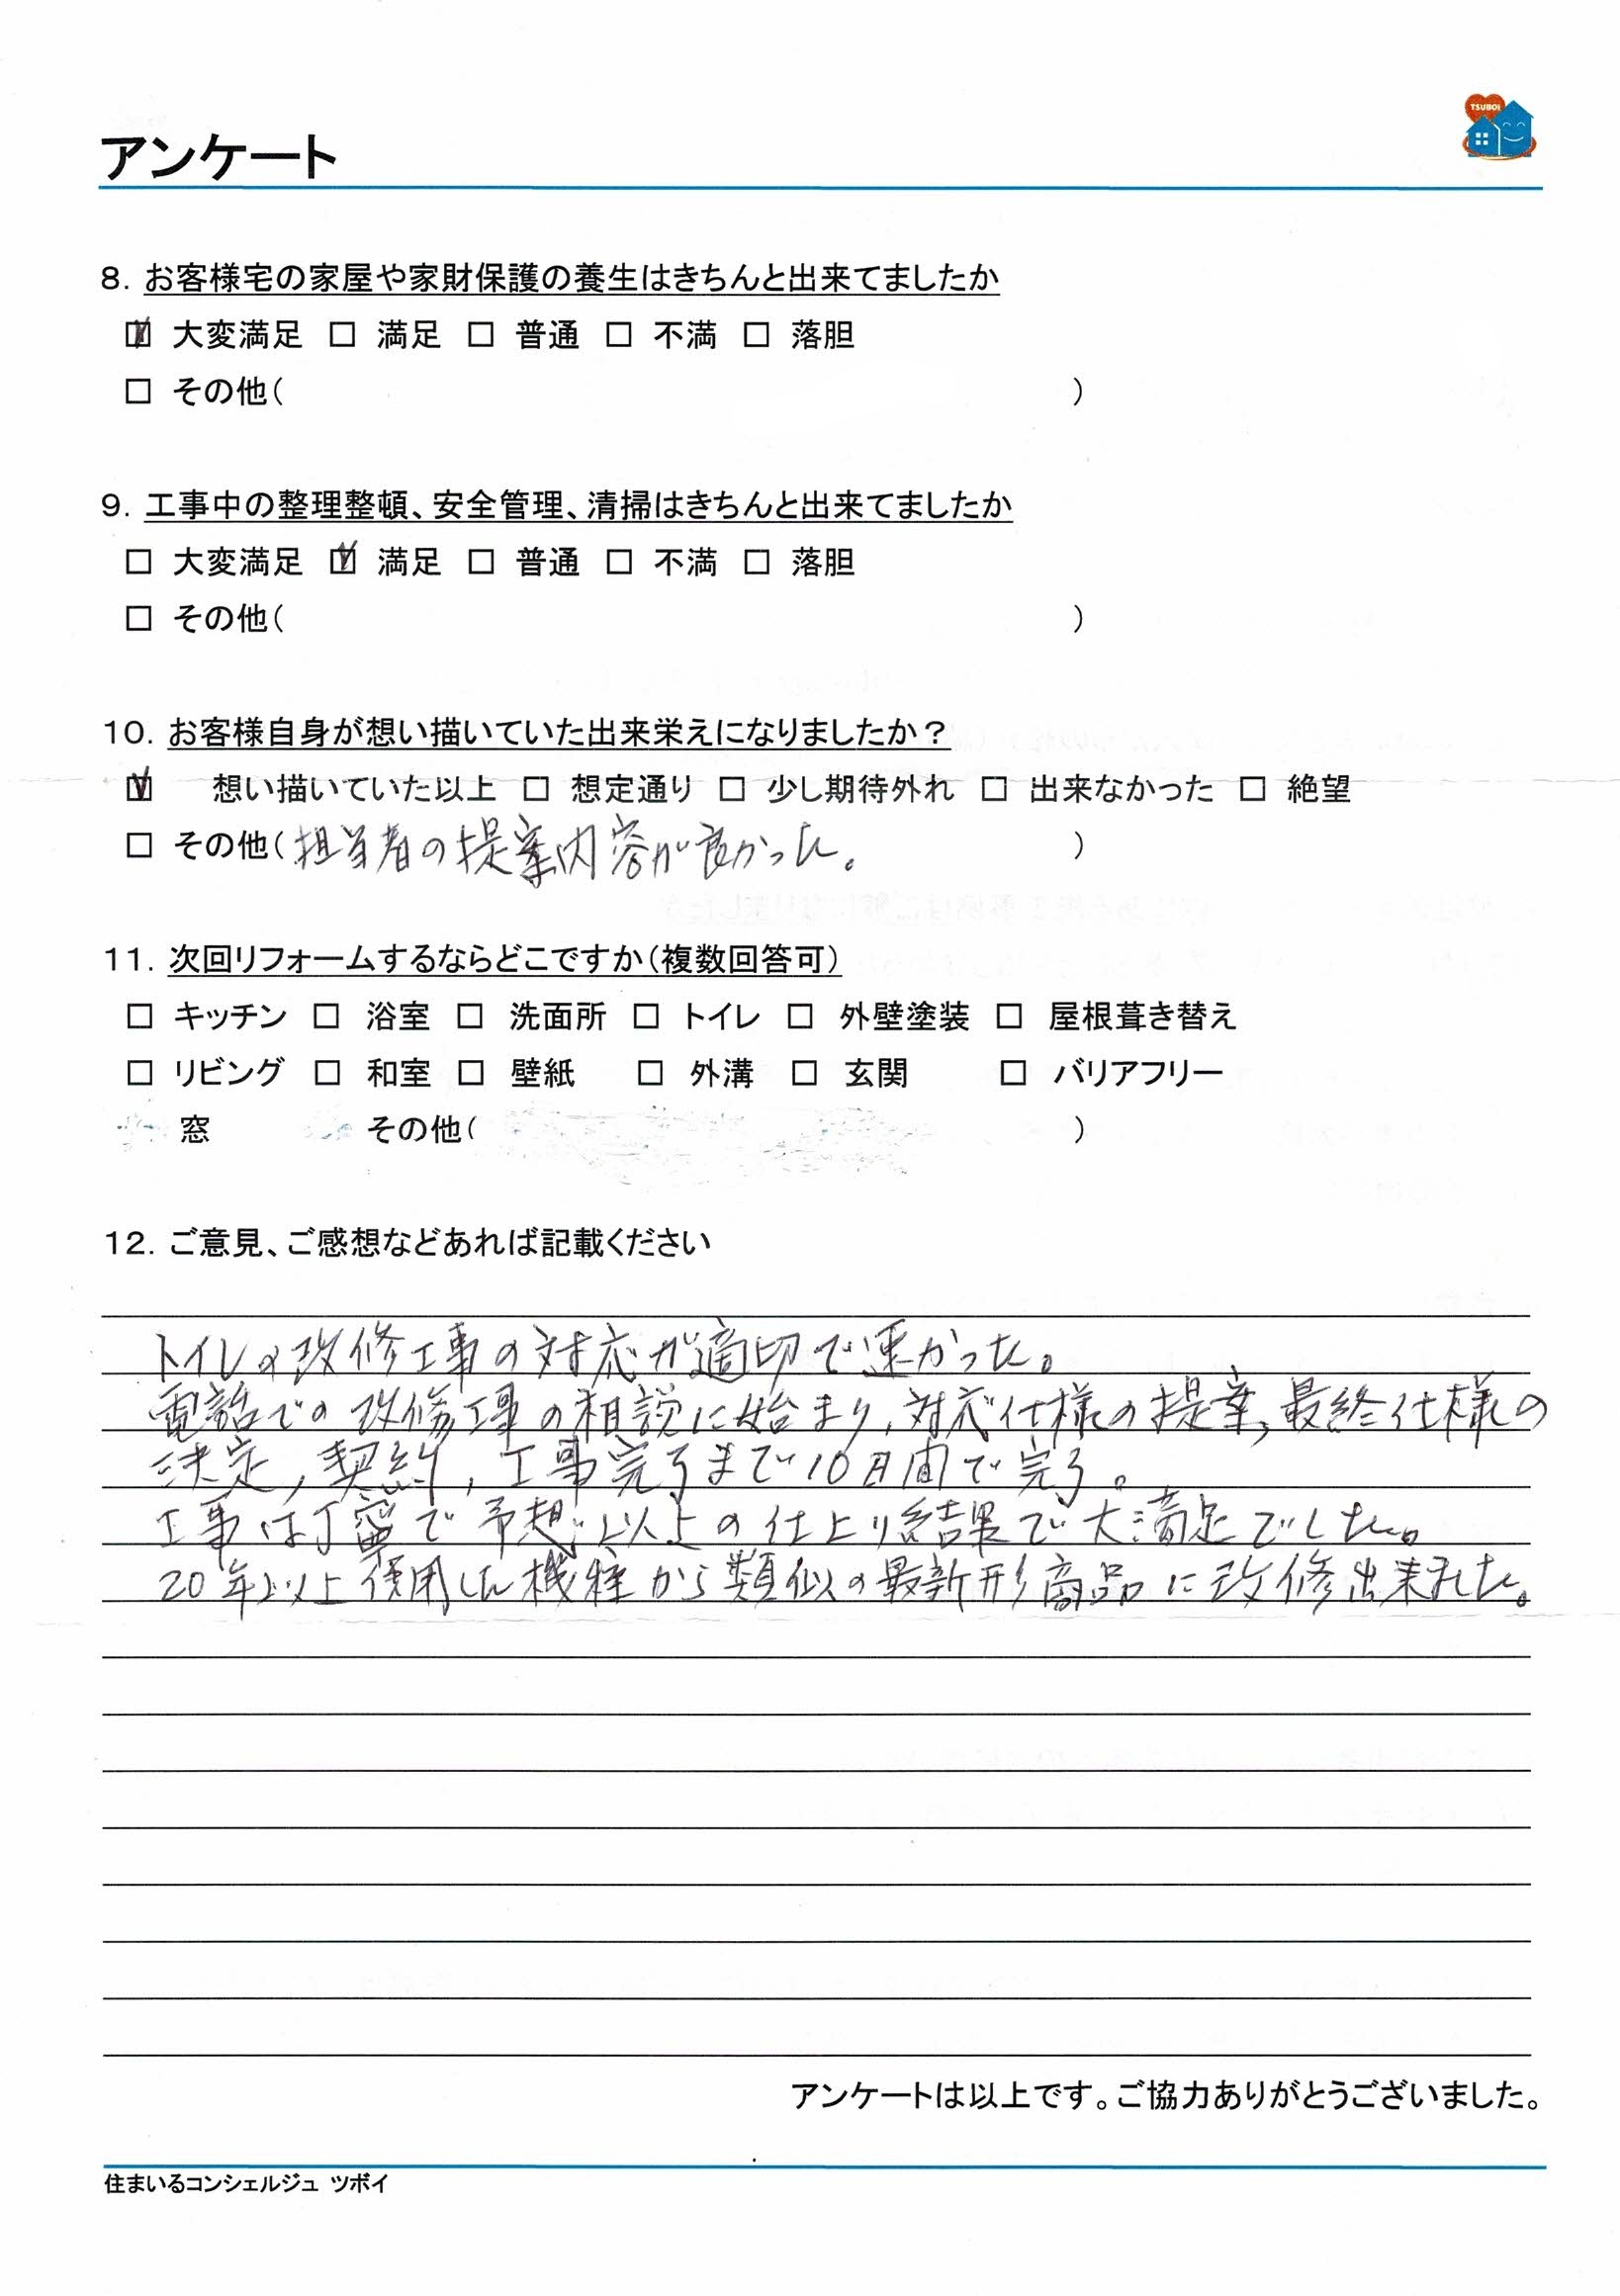 TSUBOI
アンケート
8. お客様宅の家屋や家財保護の養生はきちんと出来てましたか
☑ 大変満足 □ 満足 □ 普通 □ 不満 □ 落胆
□ その他( )
9. 工事中の整理整頓、安全管理、清掃はきちんと出来てましたか
□ 大変満足 ☑ 満足 □ 普通 □ 不満 □ 落胆
□ その他( )
10. お客様自身が想い描いていた出来栄えになりましたか?
☑ 想い描いていた以上 □ 想定通り □ 少し期待外れ □ 出来なかった □ 絶望
□ その他(担当者の提案内容が良かった。 )
11. 次回リフォームするならどこですか(複数回答可)
□ キッチン □ 浴室 □ 洗面所 □ トイレ □ 外壁塗装 □ 屋根葺き替え
□ リビング □ 和室 □ 壁紙 □ 外溝 □ 玄関 □ バリアフリー
窓 その他( )
12. ご意見、ご感想などあれば記載ください
トイレの改修工事の対応が適切で速かった。
電話での改修工事の相談に始まり、対応仕様の提案、最終仕様の
決定、契約、工事完了まで10日間で完了。
工事は丁寧で予想以上の仕上り結果で大満足でした。
20年以上使用した機種から類似の最新形商品に改修出来ました。
アンケートは以上です。ご協力ありがとうございました。
住まいるコンシェルジュ ツボイ